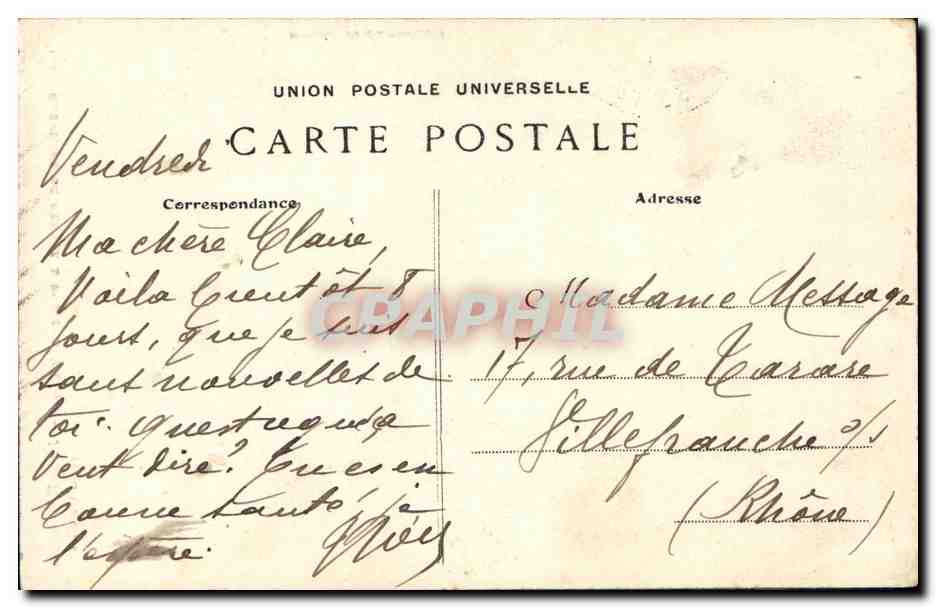 UNION POSTALE UNIVERSELLE
CARTE POSTALE
Vendredi
Correspondance
Ma chère Claire,
Voila bientôt 8
jours, que je suis
sans nouvelles de
toi. Qu'est ce que ça
veut dire? Tu es en
bonne santé, je
l'espère.
Adresse
Madame Message
17, rue de Tarare
Villefranche s/s
(Rhône)
CPAPHIL